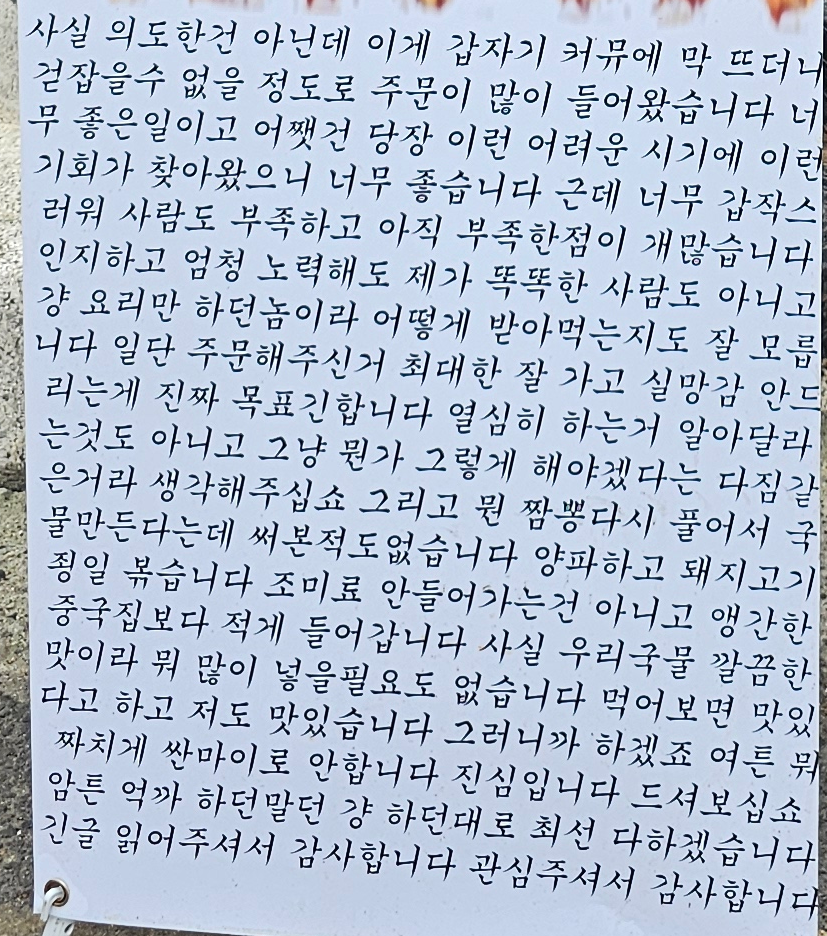 사실 의도한건 아닌데 이게 갑자기 커뮤에 막 뜨더니
걷잡을수 없을 정도로 주문이 많이 들어왔습니다 너
무 좋은일이고 어쨋건 당장 이런 어려운 시기에 이런
기회가 찾아왔으니 너무 좋습니다 근데 너무 갑작스
러워 사람도 부족하고 아직 부족한점이 개많습니다
인지하고 엄청 노력해도 제가 똑똑한 사람도 아니고
걍 요리만 하던놈이라 어떻게 받아먹는지도 잘 모릅
니다 일단 주문해주신거 최대한 잘 가고 실망감 안드
리는게 진짜 목표긴합니다 열심히 하는거 알아달라
는것도 아니고 그냥 뭔가 그렇게 해야겠다는 다짐같
은거라 생각해주십쇼 그리고 뭔 짬뽕다시 풀어서 국
물만든다는데 써본적도없습니다 양파하고 돼지고기
죙일 볶습니다 조미료 안들어가는건 아니고 앵간한
중국집보다 적게 들어갑니다 사실 우리국물 깔끔한
맛이라 뭐 많이 넣을필요도 없습니다 먹어보면 맛있
다고 하고 저도 맛있습니다 그러니까 하겠죠 여튼 뭐
짜치게 싼마이로 안합니다 진심입니다 드셔보십쇼
암튼 억까 하던말던 걍 하던대로 최선 다하겠습니다
긴글 읽어주셔서 감사합니다 관심주셔서 감사합니다